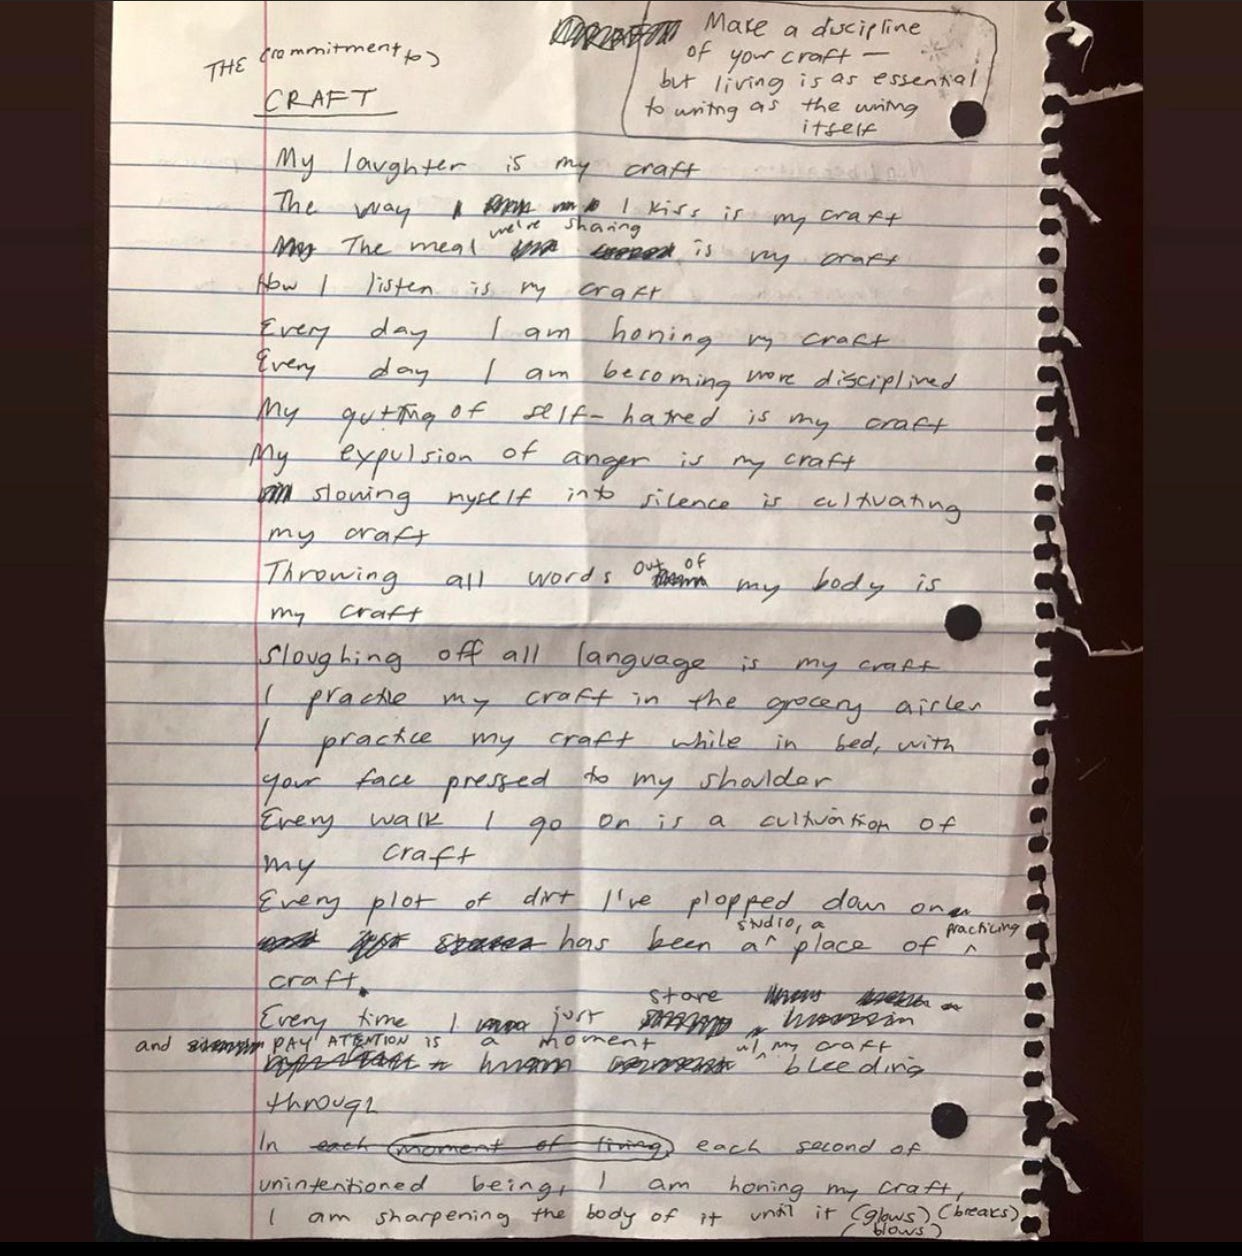 THE (commitment to)
CRAFT
Make a discipline
of your craft —
but living is as essential
to writing as the writing
itself
My laughter is my craft
The way I kiss is my craft
The meal we're sharing is my craft
How I listen is my craft
Every day I am honing my craft
Every day I am becoming more disciplined
My gutting of self-hatred is my craft
My expulsion of anger is my craft
slowing myself into silence is cultivating
my craft
Throwing all words out of my body is
my craft
Sloughing off all language is my craft
I practice my craft in the grocery aisles
I practice my craft while in bed, with
your face pressed to my shoulder
Every walk I go on is a cultivation of
my craft
Every plot of dirt I've plopped down on
has been a studio, a place of practicing
craft.
Every time I just stare
and PAY ATTENTION is a moment w/ my craft
bleeding
through
In each moment of living each second of
unintentioned being, I am honing my craft,
I am sharpening the body of it until it (glows) (breaks)
(blows)